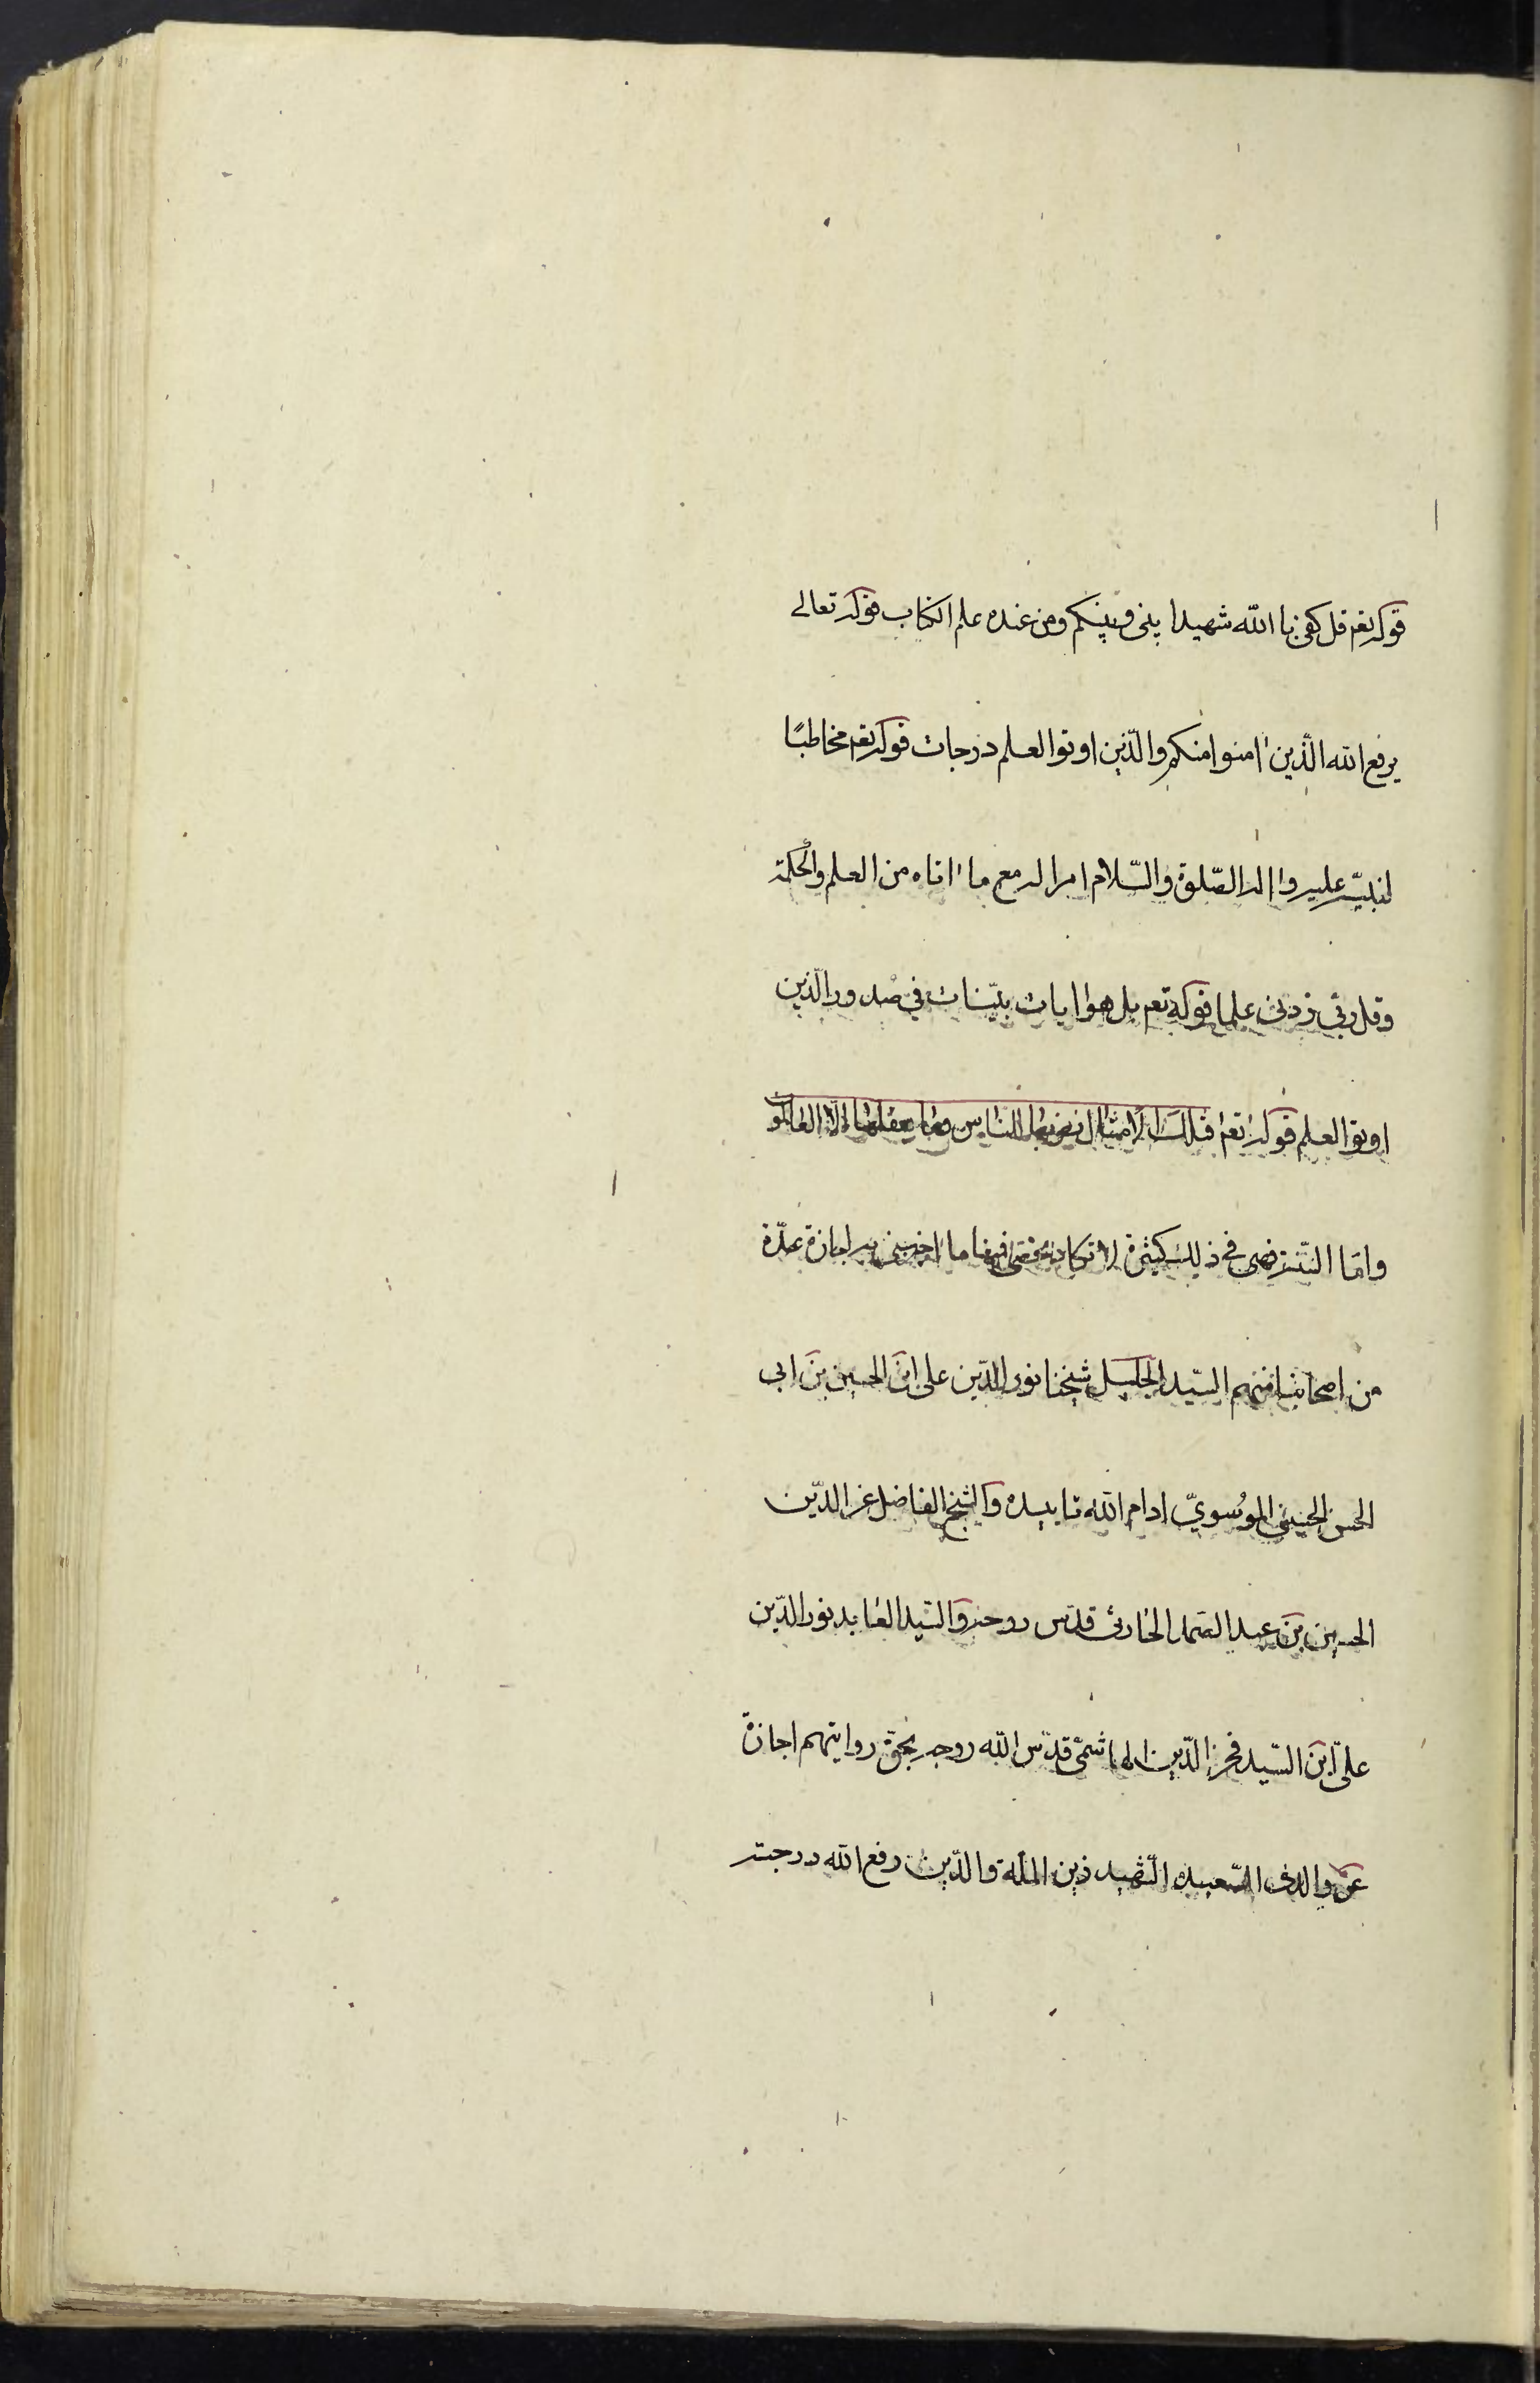 قوله تعم قل كفى باالله شهيدا بيني وبينكم ومن عنده علم الكتاب قوله تعالى
يرفع الله الّذين امنوا منكم والّذين اوتوا العلم درجات قوله تعم مخاطبًا
لنبيّه عليه واله الصّلوة والسّلام امرا له مع ما اتاه من العلم والحكمة
وقل ربّي زدني علما قوله تعم بل هو ايات بيّنات في صدور الّذين
اوتوا العلم قوله تعم تلك الامثال نضربها للناس وما يعقلها الّا العالمو
وامّا السّنة فهي في ذلك كثيرة لا تكاد فمنها ما اخبرني به اجازة عدّة
من اصحابنا منهم السّيد الجليل شيخنا نور الدّين على ابن الحسين بن ابى
الحسن الحسيني الموُسويّ ادام الله تاييده والشيخ الفاضل عز الدّين
الحسين بن عبد الصمد الحارثى قدّس روحه والسّيد العابد نور الدّين
علىّ ابن السّيد فخر الدّين الهاشمى قدّس الله روحه بحقّ روايتهم اجازة
عن والدى السّعيد الشّهيد زين الملّة والدّين رفع الله درجته